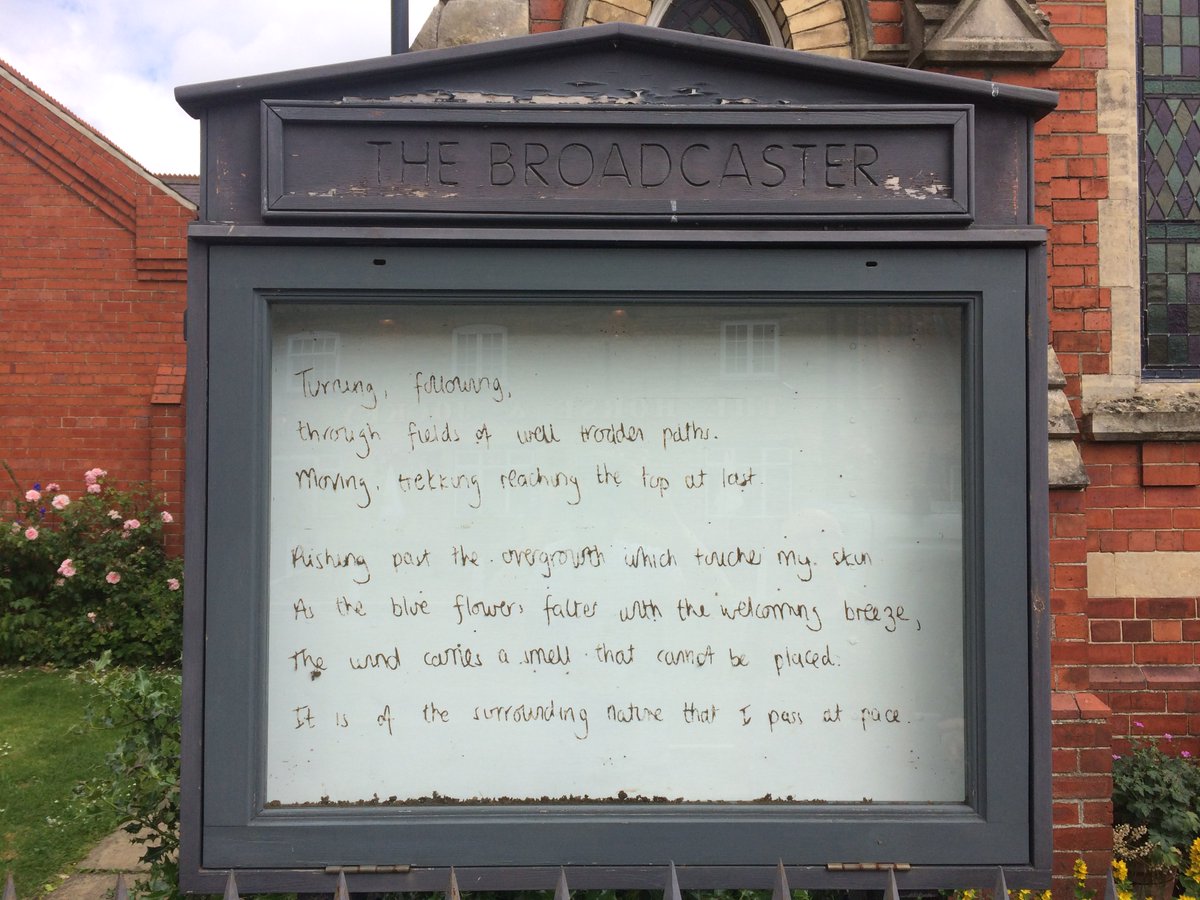 THE BROADCASTER
Turning, following,
through fields of well trodden paths.
Moving, trekking reaching the top at last.
Pushing past the overgrowth which touches my skin
As the blue flowers falter with the welcoming breeze,
The wind carries a smell that cannot be placed.
It is of the surrounding nature that I pass at pace.